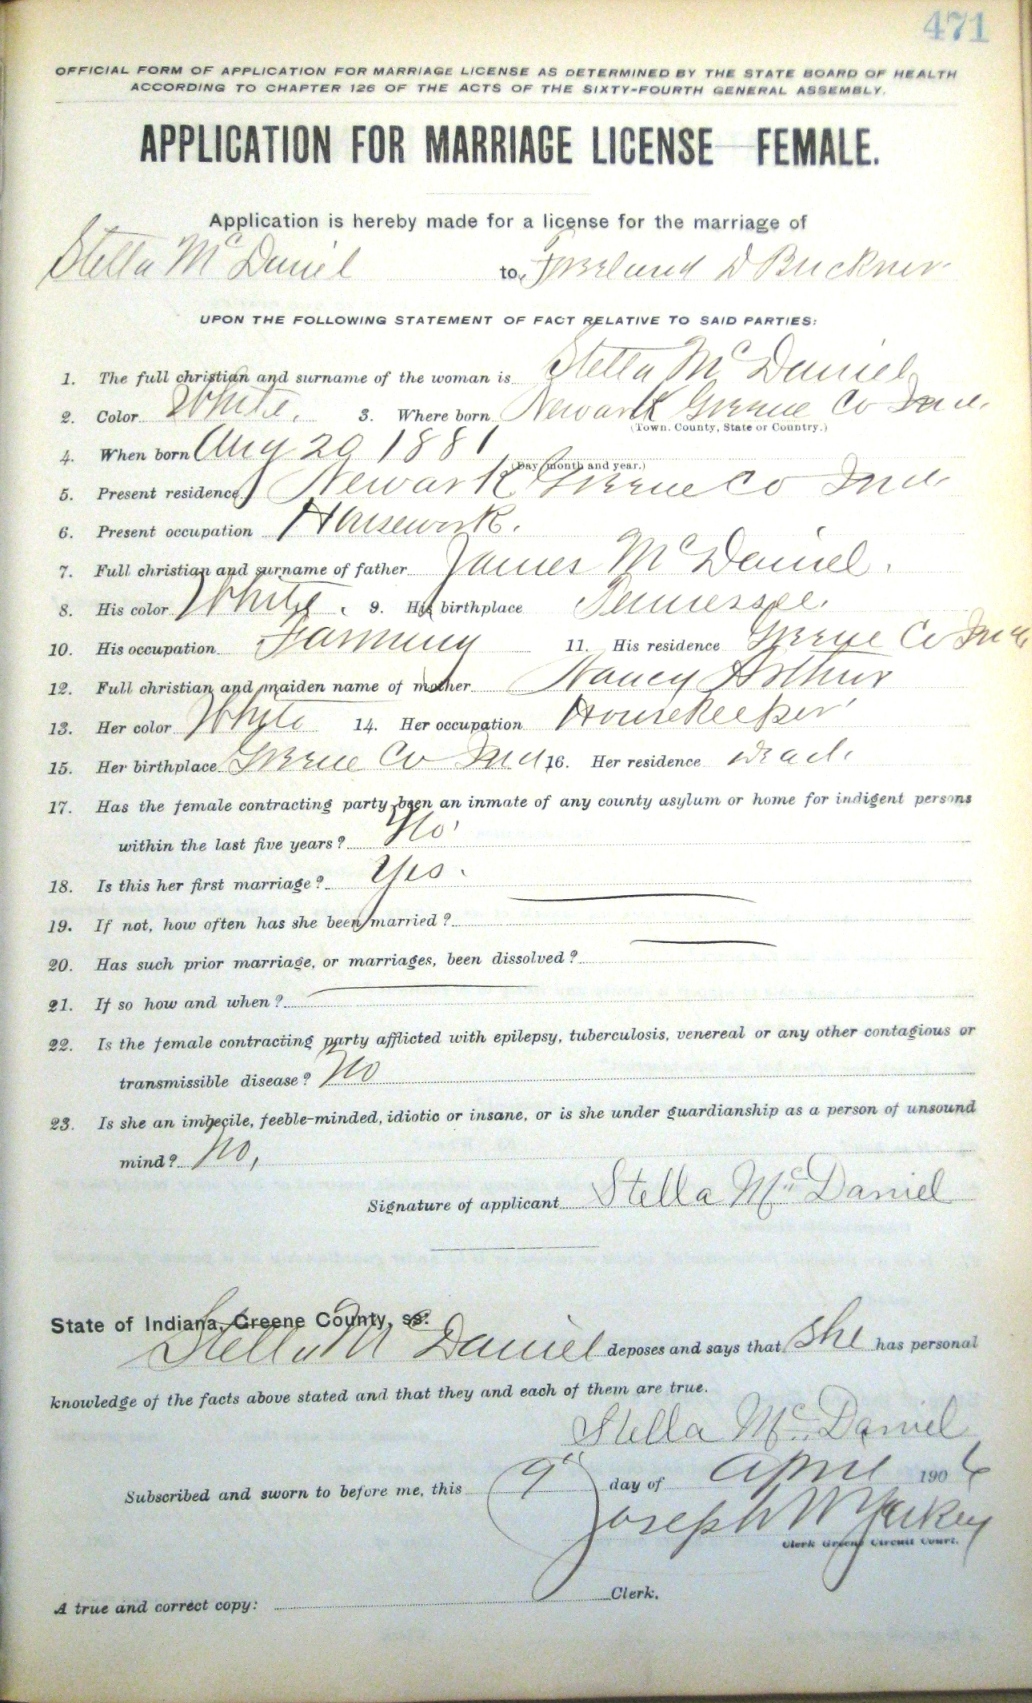 471
OFFICIAL FORM OF APPLICATION FOR MARRIAGE LICENSE AS DETERMINED BY THE STATE BOARD OF HEALTH
ACCORDING TO CHAPTER 126 OF THE ACTS OF THE SIXTY-FOURTH GENERAL ASSEMBLY.
APPLICATION FOR MARRIAGE LICENSE FEMALE.
Application is hereby made for a license for the marriage of
Stella McDaniel to D Buckner
UPON THE FOLLOWING STATEMENT OF FACT RELATIVE TO SAID PARTIES:
1. The full christian and surname of the woman is Stella McDaniel
2. Color White. 3. Where born Newark Greene Co Ind.
(Town. County, State or Country.)
4. When born Aug 29 1881
(Day month and year.)
5. Present residence Newark Greene Co Ind.
6. Present occupation Housework.
7. Full christian and surname of father James McDaniel.
8. His color White. 9. His birthplace Tennessee.
10. His occupation Farming 11. His residence Greene Co Ind
12. Full christian and maiden name of mother Nancy Arthur
13. Her color White 14. Her occupation Housekeeper
15. Her birthplace Greene Co Ind 16. Her residence dead.
17. Has the female contracting party been an inmate of any county asylum or home for indigent persons
within the last five years? No
18. Is this her first marriage? Yes.
19. If not, how often has she been married?
20. Has such prior marriage, or marriages, been dissolved?
21. If so how and when?
22. Is the female contracting party afflicted with epilepsy, tuberculosis, venereal or any other contagious or
transmissible disease? No
23. Is she an imbecile, feeble-minded, idiotic or insane, or is she under guardianship as a person of unsound
mind? No,
Signature of applicant Stella McDaniel
State of Indiana, Greene County, ss:
Stella McDaniel deposes and says that she has personal
knowledge of the facts above stated and that they and each of them are true.
Stella McDaniel
Subscribed and sworn to before me, this 9" day of April 1906
Joseph W Yakey
Clerk Greene Circuit Court.
A true and correct copy: Clerk.